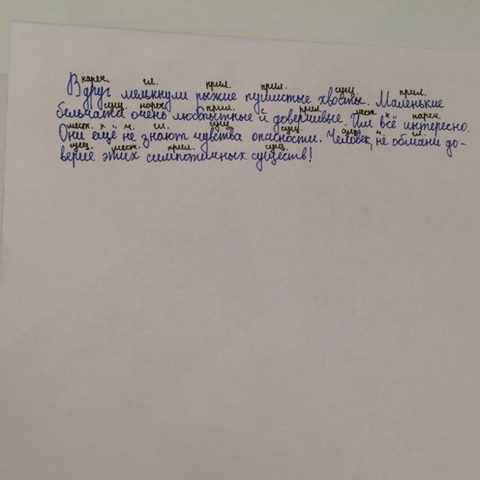 нареч. гл. прил. прил. сущ. прил.
Вдруг мелькнули рыжие пушистые хвосты. Маленькие
сущ. нареч. прил. с. прил. мест. х нареч.
бельчата очень любопытные и доверчивые. Им всё интересно.
мест. х ч. гл. сущ. сущ. сущ. ч. гл.
Они ещё не знают чувства опасности. Человек, не обмани до-
сущ. мест. прил. сущ.
верие этих симпотичных существ!